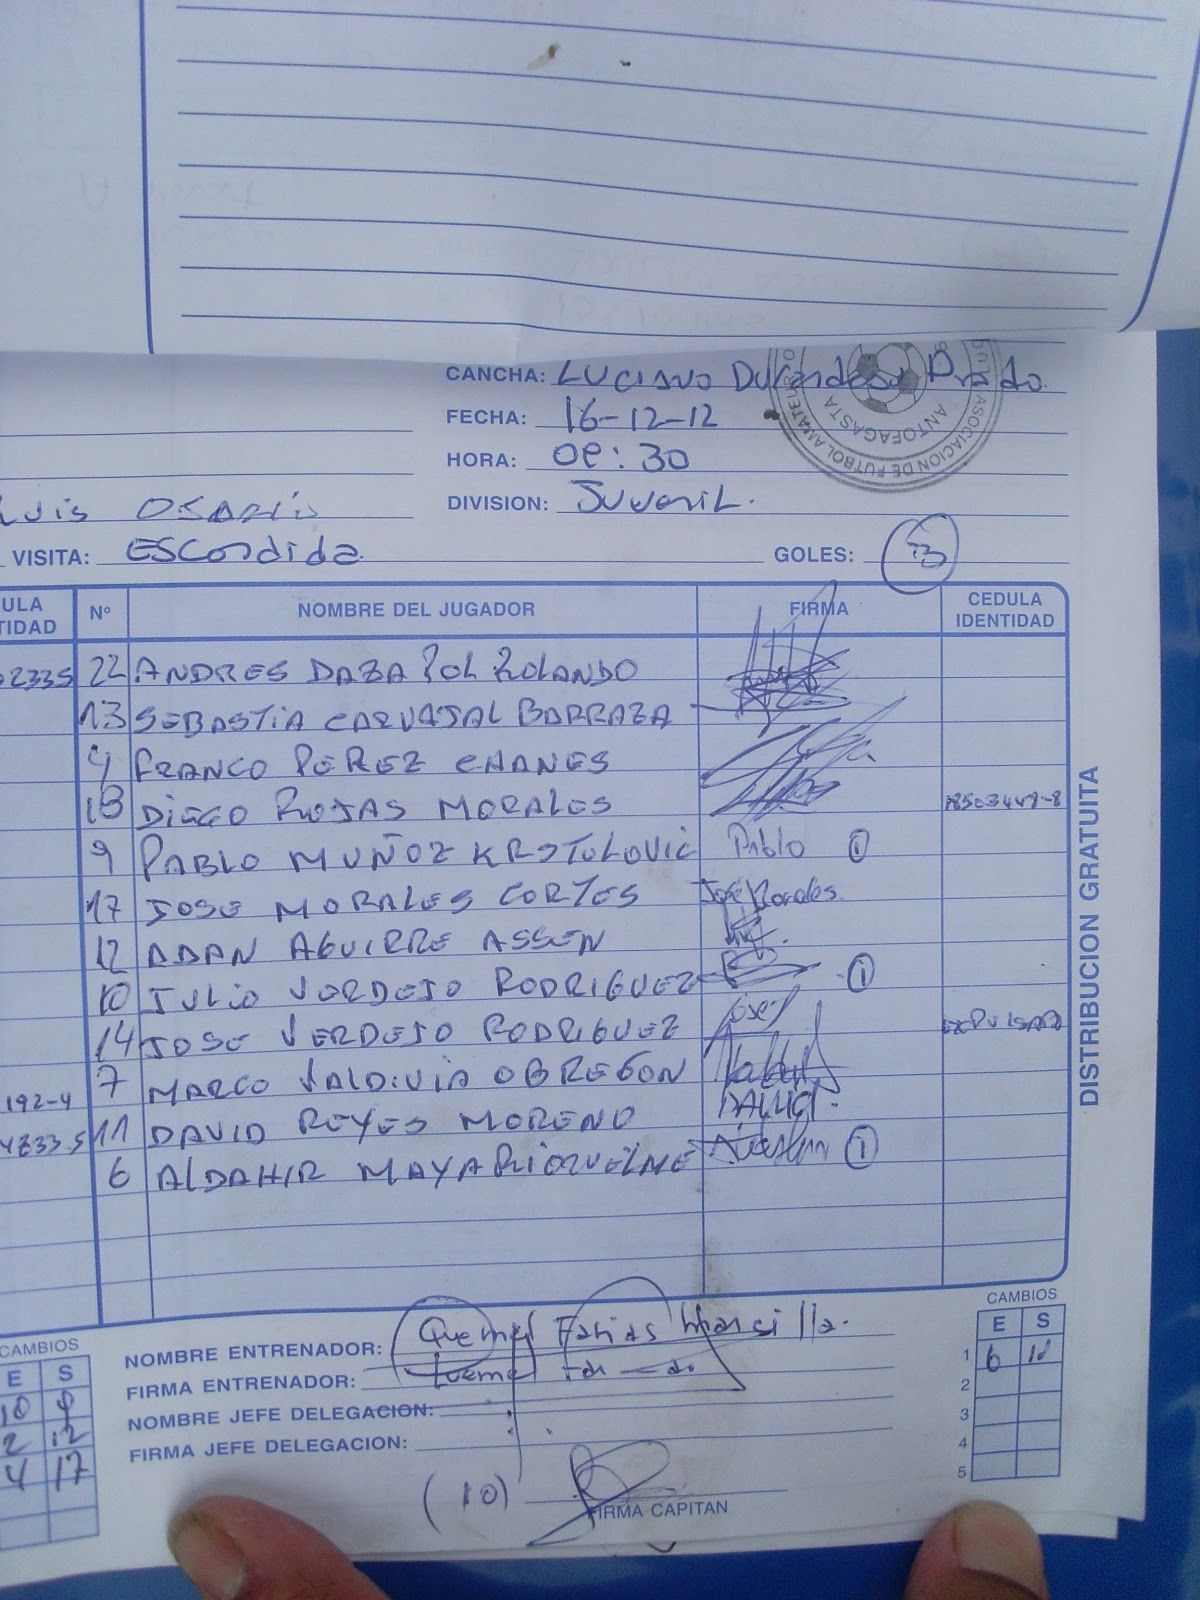 CANCHA: LUCIANO Durandeau Prado
ASOCIACION DE FUTBOL AMATEUR
ANTOFAGASTA
FECHA: 16-12-12
HORA: 09:30
LUIS OSORIO
DIVISION: JUVENIL.
VISITA: ESCONDIDA
GOLES: 3
ULA
TIDAD
Nº NOMBRE DEL JUGADOR FIRMA CEDULA IDENTIDAD
2335 22 ANDRES DAZA POL ROLANDO
13 SEBASTIA CARVAJAL BARRAZA
4 FRANCO PEREZ CHANES
18 DIEGO ROJAS MORALES 18503449-8
9 PABLO MUÑOZ KRSTULOVIC Pablo 1
17 JOSE MORALES CORTES José Morales.
12 ADAN AGUIRRE ASSEN
10 JULIO VERDEJO RODRIGUEZ 1
14 JOSE VERDEJO RODRIGUEZ José EXPULSADO
192-4 7 MARCO VALDIVIA OBREGON
4833-5 11 DAVID REYES MORENO DAVID.
6 ALDAHIR MAYA RIQUELME 1
DISTRIBUCION GRATUITA
CAMBIOS
E S
10 9
2 12
4 17
NOMBRE ENTRENADOR: Farias Marsilla.
FIRMA ENTRENADOR:
NOMBRE JEFE DELEGACION:
FIRMA JEFE DELEGACION:
(10)
FIRMA CAPITAN
CAMBIOS
E S
1 6 18
2
3
4
5